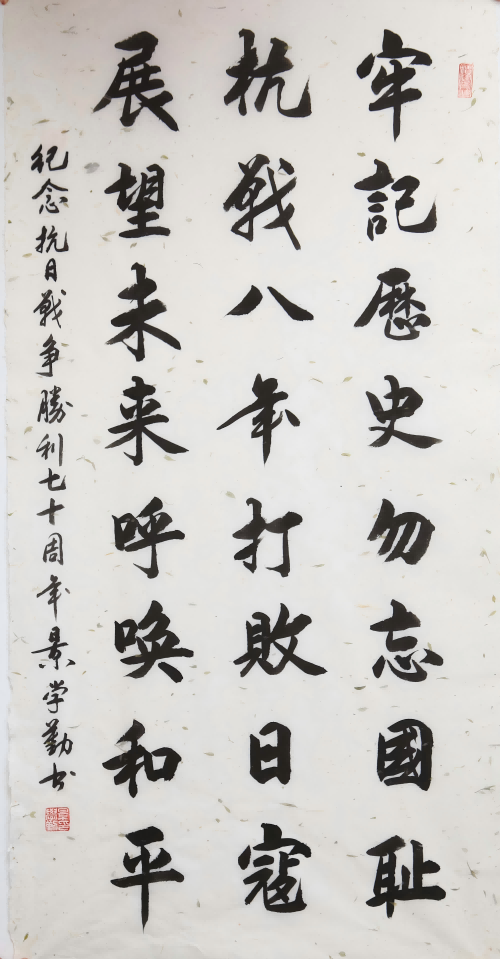 牢記歷史勿忘國耻
抗戰八年打敗日寇
展望未来呼唤和平
紀念抗日戰争勝利七十周年景学勤书